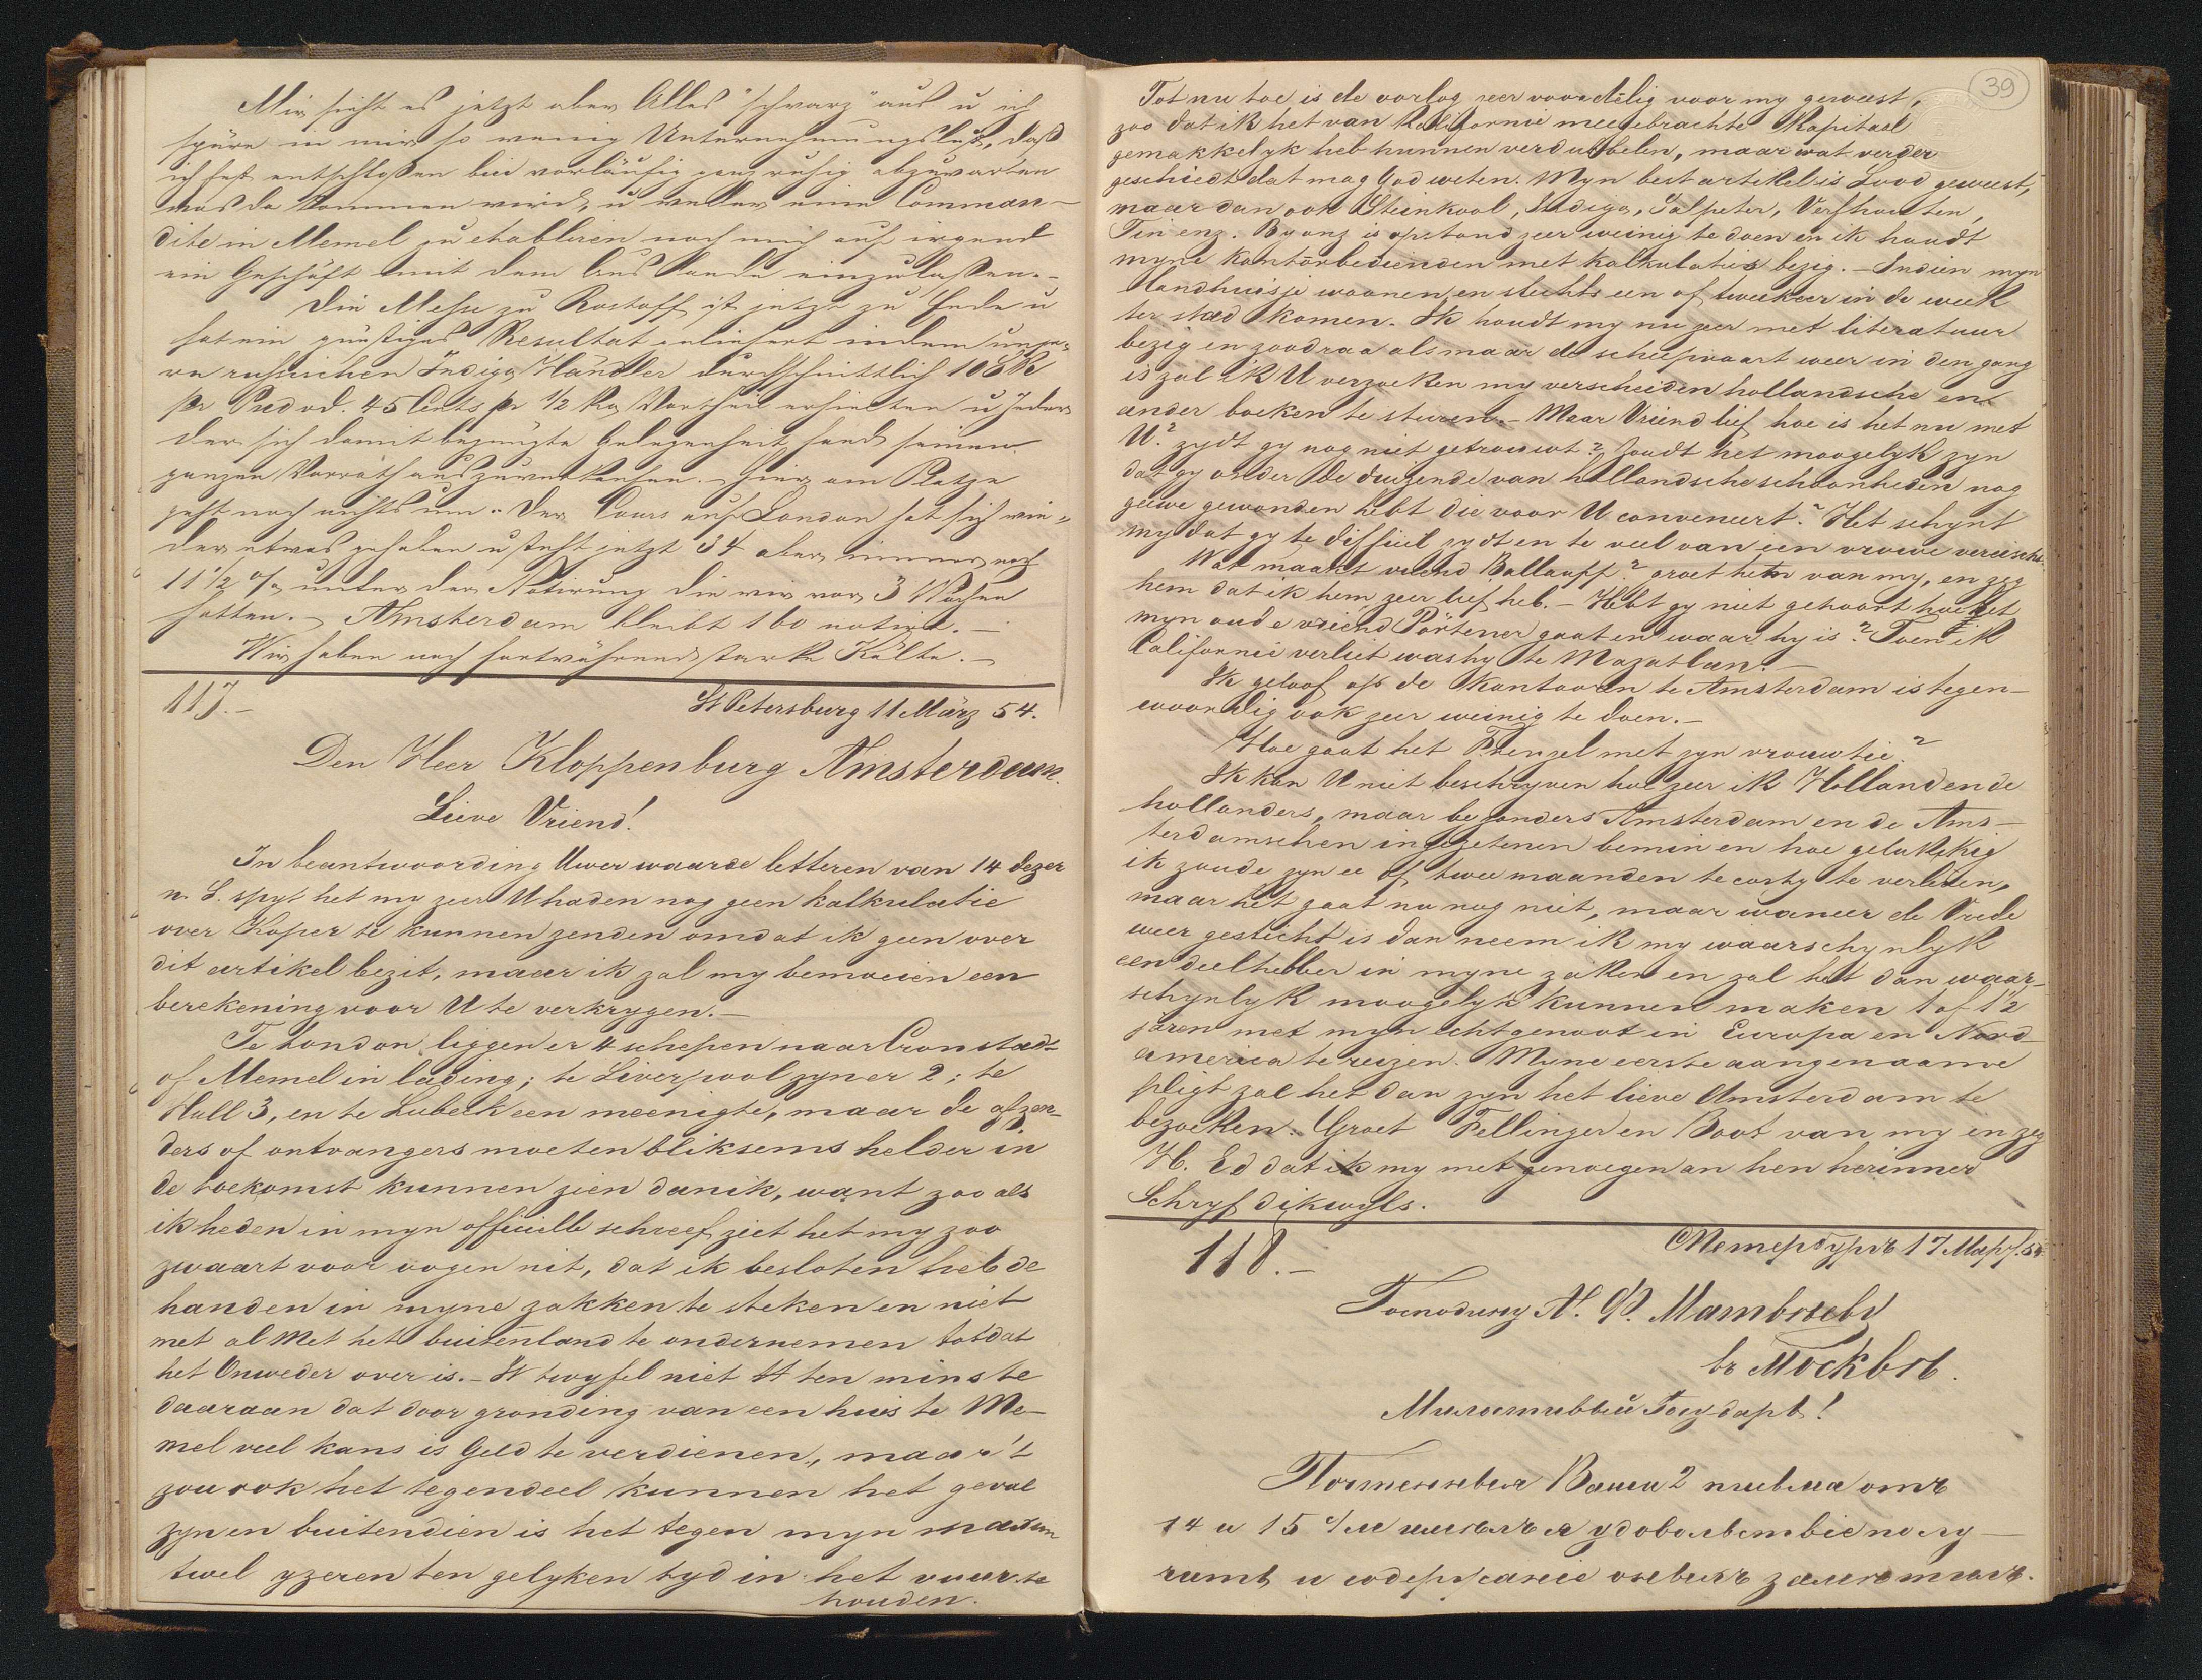 Mir sieht es jetzt aber Alles "schwarz" aus u ich
spüre in mir so wenig Unternehmungslust, daß
ich fest entschloßen bin vorläufig ganz ruhig abzuwarten
was da kommen wird, u weder eine Comman-
dite in Memel zu etabliren noch mich auf irgend
ein Geschäft mit dem Auslande einzulaßen.-
Die Messe zu Rostoff ist jetzt zu Ende u
hat ein günstiges Resultat geliefert indem unse-
re russischen Indigo Händler durchschnittlich 10 SR
pr Pud od. 45 Cents pr 1/2 Ko Vortheil erhielten u Jeder
der sich damit begnügte Gelegenheit fand seinen
ganzen Vorrath auszuverkaufen. Hier am Platze
geht noch nichts um. Der Cours auf London hat sich wie-
der etwas gehoben u steht jetzt 34 aber immer noch
11 1/2 % unter der Notirung die wir vor 3 Wochen
hatten.- Amsterdam bleibt 160 notirt.-
Wir haben noch fortwährend starke Kälte.-
117.- St Petersburg 11 März 54.
Den Heer Kloppenburg Amsterdam.
Lieve Vriend!
In beantwoording Uwer waarde letteren van 14 dezer
n. S. spyt het my zeer U haden nog geen kalkulatie
over Koper te kunnen zenden omdat ik geen over
dit artikel bezit, maar ik zal my bemoeien een
berekening voor U te verkrygen.-
Te London liggen er 4 schepen naar Cronstadt
of Memel in lading; te Liverpool zyn er 2; te
Hull 3, en te Lubeck een meenigte, maar de afzen-
ders of ontvangers moeten bliksems helder in
de toekomst kunnen zien dan ik, want zoo als
ik heden in myn officiëlle schreef ziet het my zoo
zwaart voor oogen uit, dat ik besloten heb de
handen in myne zakken te steken en niet
met al met het buitenland te ondernemen totdat
het Onweder over is.- Ik twyfel niet ten minste
daaraan dat door gronding van een huis te Me-
mel veel kans is Geld te verdienen, maar 't
zou ook het tegendeel kunnen het geval
zyn en buitendien is het tegen myn maxim
twel yzeren ten gelyken tyd in het vuur te
houden.
39
Tot nu toe is de oorlog zeer voordelig voor my geweest,
zoo dat ik het van Kalifornie meegebrachte Kapitaal
gemakkelyk heb kunnen verdubbelen, maar wat verder
geschiedt dat mag God weten. Myn best artekel is Lood geweest,
maar dan ook Steinkool, Indigo, Salpeter, Verfhouten,
Tin enz. By ons is opstond zeer weinig te doen en ik houdt
myne kantorbedienden met kalkulaties bezig.- Indien myn
Handhuisje woonen en slechts een of tweekeer in de week
ter stad komen. Ik houdt my nu zeer met literatuur
bezig en zoodraa als maar de scheepvaart weer in den gang
is zal ik U verzoeken my verscheiden hollandsche en
ander boeken te sturen.- Maar Vriend lief hoe is het nu met
U.? zydt gy nog niet getrouwt? Zoudt het moogelyk zyn
dat gy onder de duizende van hollandsche schoonheden nog
geene gewonden hebt die voor U conveneert? Het schynt
my dat gy te difficil zydt en te veel van een vrouwe vereischt.
Wat maakt vriend Ballauff? groet hem van my, en zeg
hem dat ik hem zeer lief heb.- Hebt gy niet gehoort hoe het
myn oude vriend Pörtener gaat en waar hy is? Toen ik
Californie verliet was hy te Mazatlan.-
Ik geloof op de Kantooren te Amsterdam is tegen-
woordig ook zeer weinig te doen.-
Hoe gaat het Frenzel met zyn vrouwtie?
Ik kan U niet beschryven hoe zeer ik Holland en de
hollanders, maar bezonders Amsterdam en de Ams-
terdamschen ingezetenen bemin en hoe gelukkig
ik zoude zyn ee of twee maanden te costy te verleven,
maar het gaat nu nog niet, maar waneer de Vrede
weer gesticht is dan neem ik my waarschynlyk
een deelhebber in myne zaken en zal het dan waar-
schynlyk moogelyk kunnen maken 1 of 1 1/2
jaren met myn echtgenoot in Europa en Nord
america te reizen. Myne eerste aangenaame
pligt zal het dan zyn het lieve Amsterdam te
bezoeken. Groet Fellinger en Boot van my en zeg
H. Ed dat ik my met genoegen an hen herinner
Schryf dikwyls.
118.- Петербургъ 17 Марта. 54
Господину А. Ф. Матвѣеву
въ Москвѣ.
Милостивый Государь!
Почтенныя Ваши 2 письма отъ
14 и 15 с/м имѣлъ я удовольствіе полу-
чить и содержаніе оныхъ замѣтилъ.